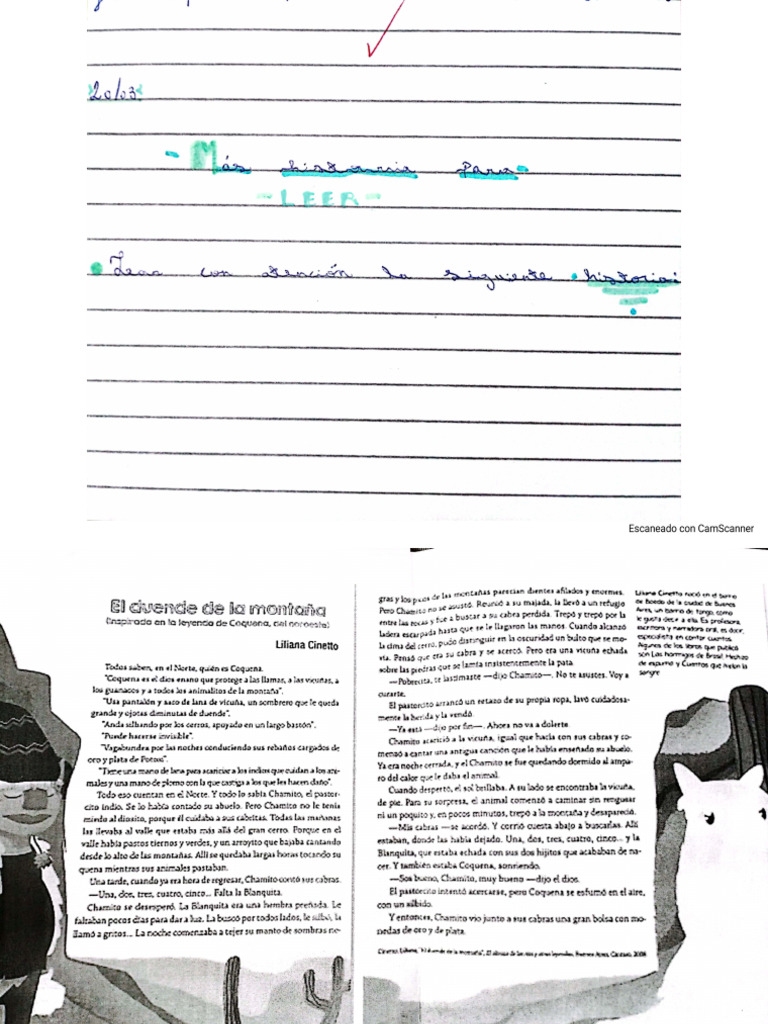 20/03
- Más historias para -
- LEER -
• Lea con atención la siguiente historia:
Escaneado con CamScanner
El duende de la montaña
(Inspirada en la leyenda de Coquena, del noroeste)
Liliana Cinetto
Todos saben, en el Norte, quién es Coquena.
"Coquena es el dios enano que protege a las llamas, a las vicuñas, a
los guanacos y a todos los animalitos de la montaña".
"Usa pantalón y saco de lana de vicuña, un sombrero que le queda
grande y ojotas diminutas de duende".
"Anda silbando por los cerros, apoyado en un largo bastón".
"Puede hacerse invisible".
"Vagabundea por las noches conduciendo sus rebaños cargados de
oro y plata de Potosí".
"Tiene una mano de lana para acariciar a los indios que cuidan a los ani-
males y una mano de plomo con la que castiga a los que les hacen daño".
Todo eso cuentan en el Norte. Y todo lo sabía Chamito, el pastor-
cito indio. Se lo había contado su abuelo. Pero Chamito no le tenía
miedo al diosito, porque él cuidaba a sus cabritas. Todas las mañanas
las llevaba al valle que estaba más allá del gran cerro. Porque en el
valle había pastos tiernos y verdes, y un arroyito que bajaba cantando
desde lo alto de las montañas. Allí se quedaba largas horas tocando su
quena mientras sus animales pastaban.
Una tarde, cuando ya era hora de regresar, Chamito contó sus cabras.
—Una, dos, tres, cuatro, cinco... Falta la Blanquita.
Chamito se desesperó. La Blanquita era una hembra preñada. Le
faltaban pocos días para dar a luz. La buscó por todos lados, le silbó, la
llamó a gritos... La noche comenzaba a tejer su manto de sombras ne-
gras y los picos de las montañas parecían dientes afilados y enormes.
Pero Chamito no se asustó. Reunió a su majada, la llevó a un refugio
entre las rocas y fue a buscar a su cabra perdida. Trepó y trepó por la
ladera escarpada hasta que se le llagaron las manos. Cuando alcanzó
la cima del cerro, pudo distinguir en la oscuridad un bulto que se mo-
vía. Pensó que era su cabra y se acercó. Pero era una vicuña echada
sobre las piedras que se lamía insistentemente la pata.
—Pobrecita, te lastimaste —dijo Chamito—. No te asustes. Voy a
curarte.
El pastorcito arrancó un retazo de su propia ropa, lavó cuidadosa-
mente la herida y la vendó.
—Ya está —dijo por fin—. Ahora no va a dolerte.
Chamito acarició a la vicuña, igual que hacía con sus cabras y co-
menzó a cantar una antigua canción que le había enseñado su abuelo.
Ya era noche cerrada, y el Chamito se fue quedando dormido al ampa-
ro del calor que le daba el animal.
Cuando despertó, el sol brillaba. A su lado se encontraba la vicuña,
de pie. Para su sorpresa, el animal comenzó a caminar sin renguear
ni un poquito y, en pocos minutos, trepó a la montaña y desapareció.
—Mis cabras —se acordó. Y corrió cuesta abajo a buscarlas. Allí
estaban, donde las había dejado. Una, dos, tres, cuatro, cinco... y la
Blanquita, que estaba echada con sus dos hijitos que acababan de na-
cer. Y también estaba Coquena, sonriendo.
—Sos bueno, Chamito, muy bueno —dijo el dios.
El pastorcito intentó acercarse, pero Coquena se esfumó en el aire,
con un silbido.
Y entonces, Chamito vio junto a sus cabras una gran bolsa con mo-
nedas de oro y de plata.
Cinetto, Liliana, "El duende de la montaña", El y otras leyendas, Buenos Aires, 2008
Liliana Cinetto nació en el barrio
de Boedo de la ciudad de Buenos
Aires, un barrio de tango, como
le gusta decir a ella. Es profesora,
escritora y narradora oral, es decir,
especialista en contar cuentos.
Algunos de los libros que publicó
son Las hormigas de Brasil, Hechizo
de espuma y Cuentos que hielan la
sangre